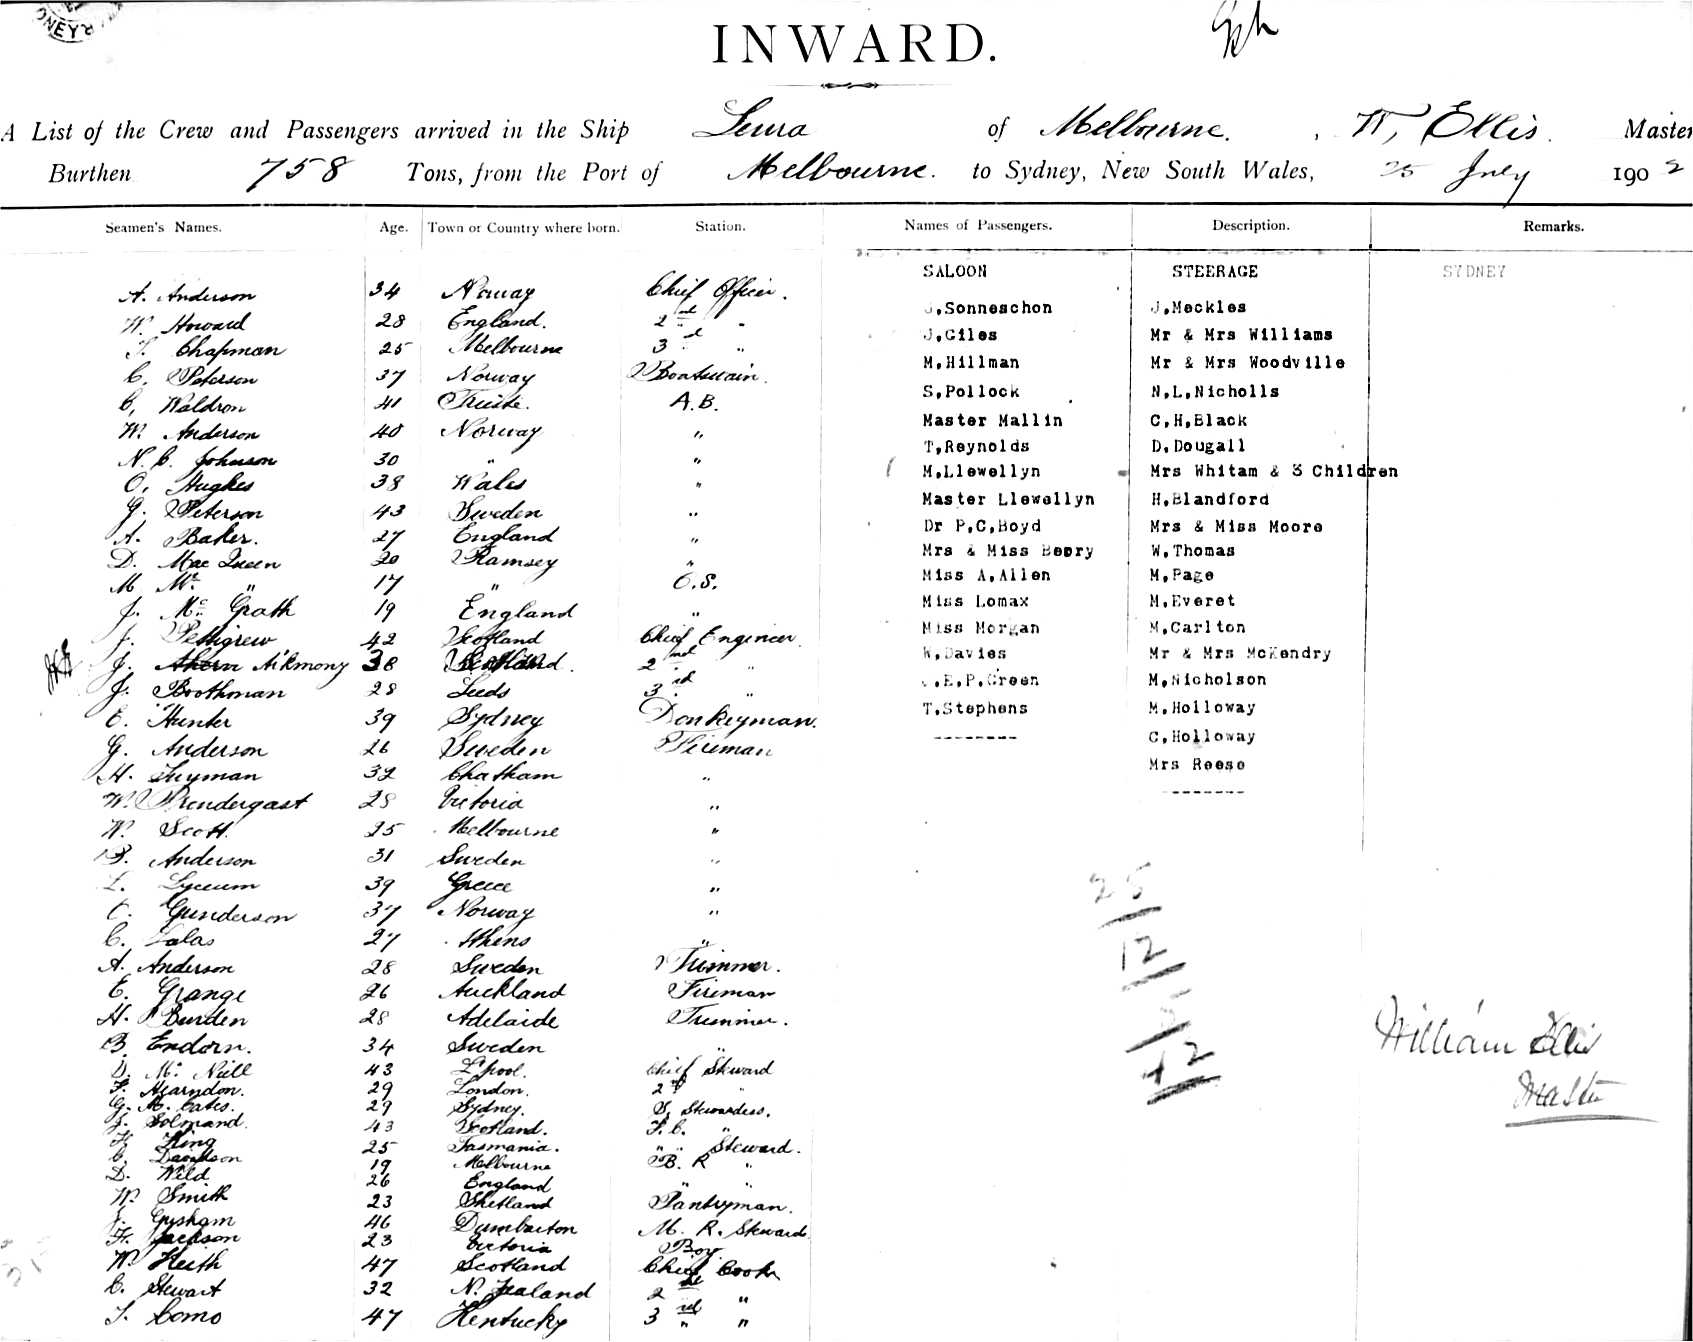 INWARD.
A List of the Crew and Passengers arrived in the Ship Leura of Melbourne. , W, Ellis. Master
Burthen 758 Tons, from the Port of Melbourne. to Sydney, New South Wales, 25 July 1902
Seamen's Names. Age. Town or Country where born. Station. Names of Passengers. Description. Remarks.
SALOON STEERAGE SYDNEY
A. Anderson 34 Norway Chief Officer.
W. Howard 28 England. 2nd "
Chapman 25 Melbourne 3rd "
C. Peterson 37 Norway Boatswain.
C, Waldron 41 Trieste. A.B.
W. Anderson 40 Norway "
N. C. Johnson 30 " "
O. Hughes 38 Wales "
G. Peterson 43 Sweden "
A. Baker. 27 England "
D. Mac Queen 20 Ramsey "
M Mc " 17 " O.S.
J. Mc Grath 19 England "
J. Pettigrew 42 Scotland Chief Engineer.
J. Ahern Aikmony 38 Scotland. 2nd "
J. Boothman 28 Leeds 3rd "
E. Hunter 39 Sydney Donkeyman.
G. Anderson 26 Sweden Fireman
H. 32 Chatham "
W. Prendergast 28 Victoria "
W. Scott. 25 Melbourne "
B. Anderson 31 Sweden "
L. Lyceum 39 Greece "
C. Gunderson 37 Norway "
C. 27 Athens "
A. Anderson 28 Sweden Trimmer.
E. Grange 26 Auckland Fireman
H. Burden 28 Adelaide Trimmer.
B. Endorn. 34 Sweden "
D. Mc Neill 43 L'pool. Chief Steward
F. Hearndon. 29 London. 2nd "
G. M. Cates. 29 Sydney. S. Stewardess.
J. Solmand. 43 Scotland. F.C. "
King 25 Tasmania. " " Steward.
C. Davidson 19 Melbourne B. R "
D. Wild 26 England " "
W. Smith 23 Shetland Pantryman.
J. Grisham 46 Dumbarton M. R. Steward.
H. Jackson 23 Victoria Boy
W. Keith 47 Scotland Chief Cook
C. Stewart 32 N. Zealand 2nd "
T. Como 47 Kentucky 3rd "
J.Sonneschon J.Meckles
J.Giles Mr & Mrs Williams
M.Hillman Mr & Mrs Woodville
S.Pollock N.L.Nicholls
Master Mallin C.H.Black
T.Reynolds D.Dougall
M.Llewellyn Mrs Whitam & 3 Children
Master Llewellyn H.Blandford
Dr P.C.Boyd Mrs & Miss Moore
Mrs & Miss Beery W.Thomas
Miss A.Allen M.Page
Miss Lomax M.Everet
Miss Morgan M.Carlton
W.Davies Mr & Mrs McKendry
.E.P.Green M.Nicholson
T.Stephens M.Holloway
-------- C.Holloway
Mrs Reese
--------
25
12
42
William Ellis
Master